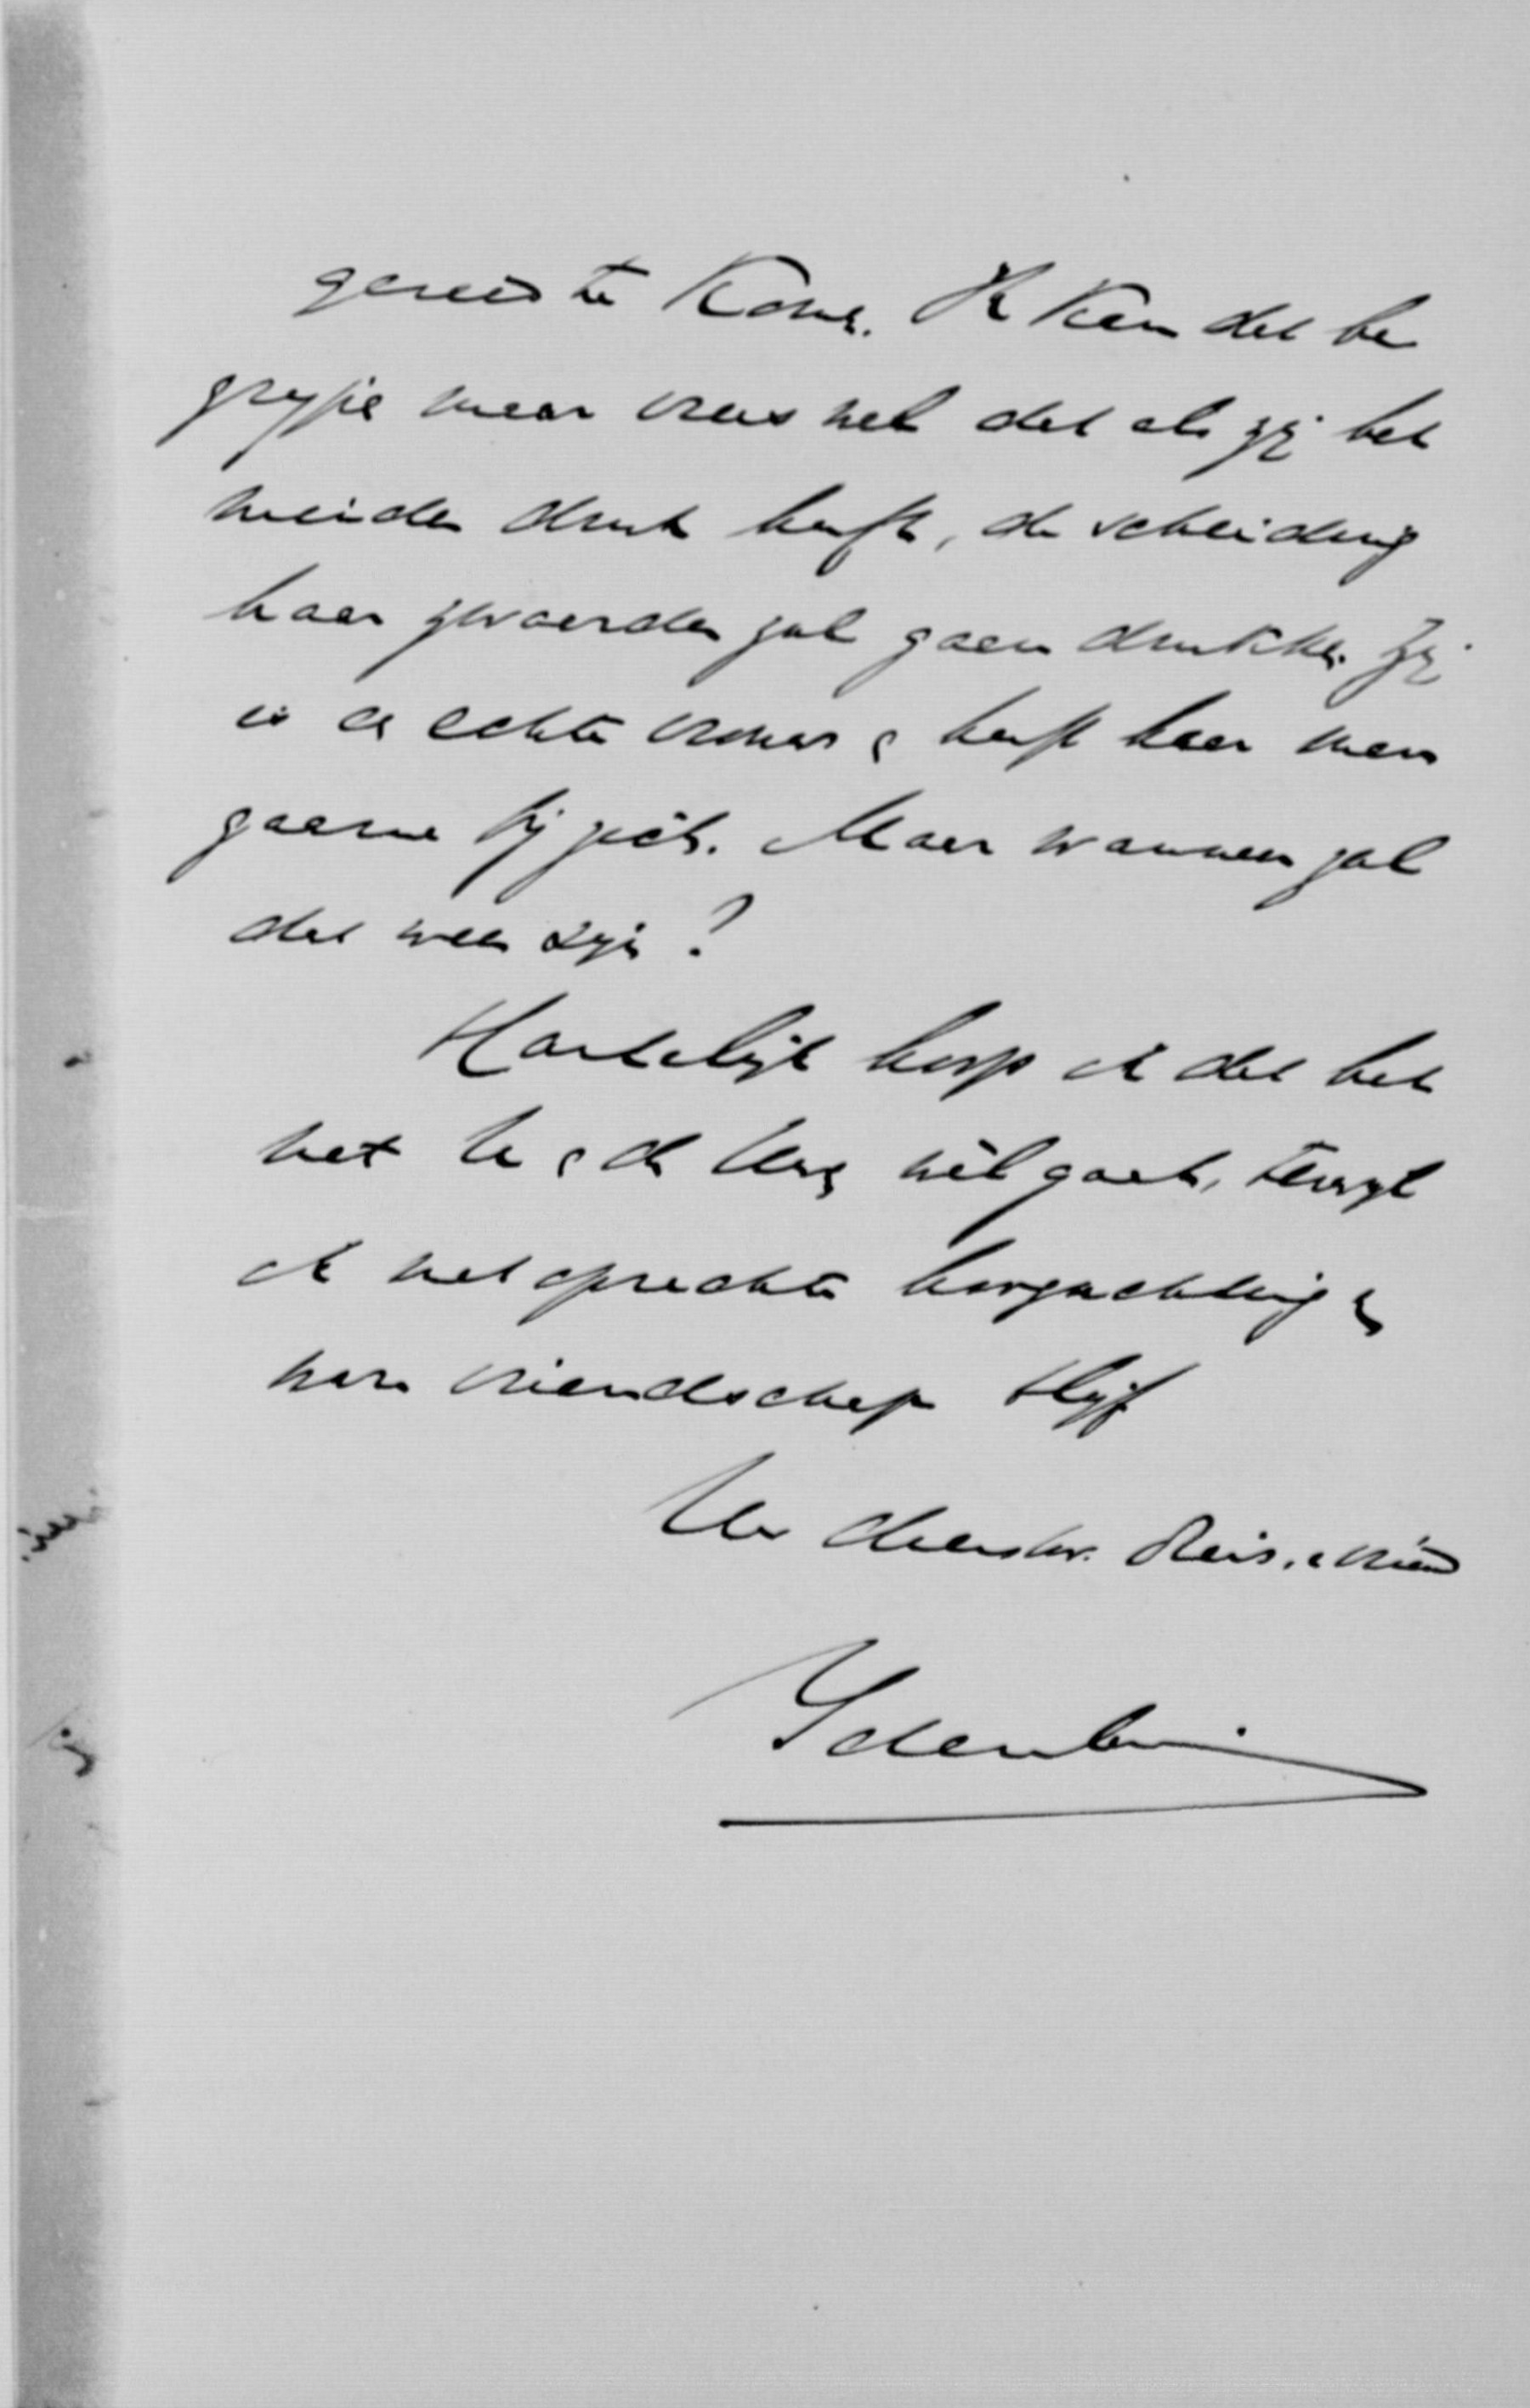 gereed te komen. Ik kan dat be
grijpen maar vrees wel dat als zij het
minder druk heeft, de scheiding
haar zwaarder zal gaan drukken. Zij
is een echte vrouw & heeft haar man
gaarne bij zich. Maar wanneer zal
dat weer zijn?
Hartelijk hoop ik dat het
met U & de Uwen wèl gaat, terwijl
ik met oprechte hoogachting en
ware vriendschap blijf
Uw dienstw. dien. & vriend
Idenburg